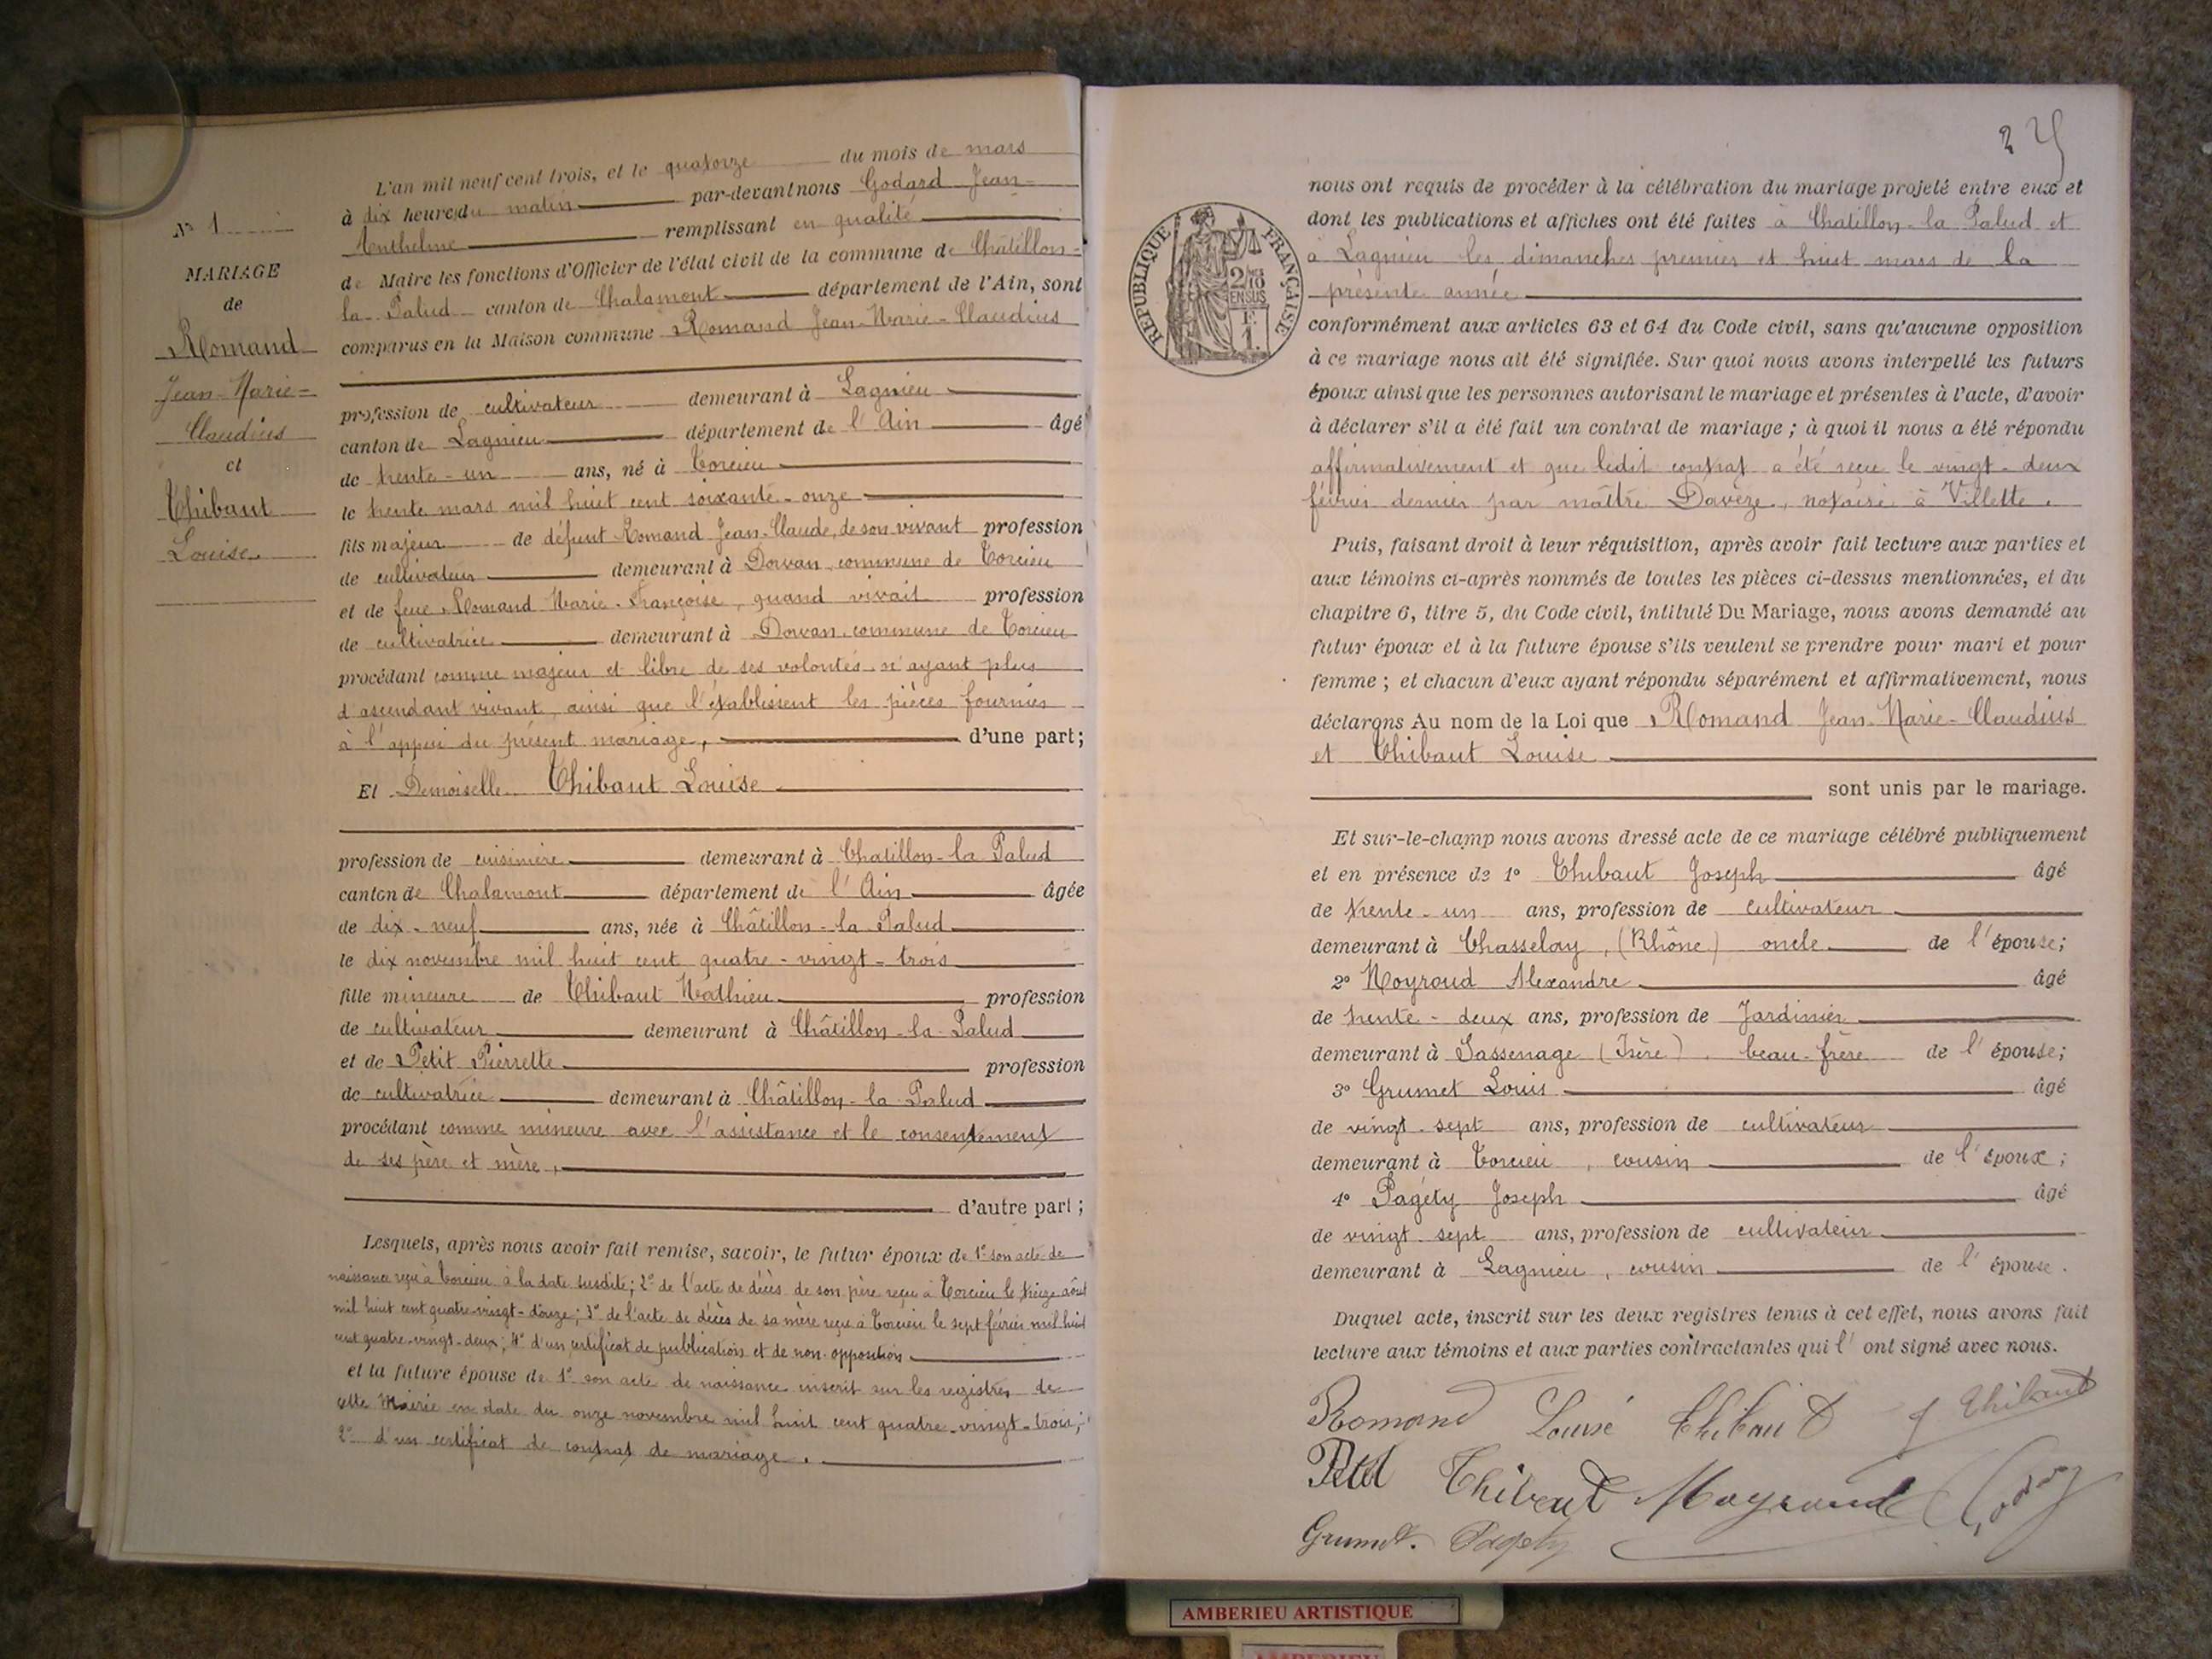 N° 1
MARIAGE
de
Romand
Jean-Marie-
Claudius
et
Thibaut
Louise.
L'an mil neuf cent trois, et le quatorze du mois de mars
à dix heures du matin par-devant nous Godard Jean-
Anthelme remplissant en qualité
de Maire les fonctions d'Officier de l'état civil de la commune de Châtillon-
la-Palud canton de Chalamont département de l'Ain, sont
comparus en la Maison commune Romand Jean-Marie-Claudius
profession de cultivateur demeurant à Lagnieu
canton de Lagnieu département de l'Ain âgé
de trente-un ans, né à Torcieu
le trente mars mil huit cent soixante-onze
fils majeur de défunt Romand Jean-Claude, de son vivant profession
de cultivateur demeurant à Dorvan commune de Torcieu
et de feue Romand Marie-Françoise, quand vivait profession
de cultivatrice demeurant à Dorvan commune de Torcieu
procédant comme majeur et libre de ses volontés n'ayant plus
d'ascendant vivant ainsi que l'établissent les pièces fournies
à l'appui du présent mariage, d'une part;
Et Demoiselle Thibaut Louise
profession de cuisinière demeurant à Chatillon-la-Palud
canton de Chalamont département de l'Ain âgée
de dix-neuf ans, née à Châtillon-la-Palud
le dix novembre mil huit cent quatre-vingt-trois
fille mineure de Thibaut Mathieu profession
de cultivateur demeurant à Châtillon-la-Palud
et de Petit Pierrette profession
de cultivatrice demeurant à Châtillon-la-Palud
procédant comme mineure avec l'assistance et le consentement
de ses père et mère,
d'autre part;
Lesquels, après nous avoir fait remise, savoir, le futur époux de 1° son acte de
naissance reçu à Torcieu à la date susdite; 2° de l'acte de décès de son père reçu à Torcieu le treize août
mil huit cent quatre-vingt-douze; 3° de l'acte de décès de sa mère reçu à Torcieu le sept février mil huit
cent quatre-vingt-deux; 4° d'un certificat de publications et de non opposition
et la future épouse de 1° son acte de naissance inscrit sur les registres de
cette Mairie en date du onze novembre mil huit cent quatre-vingt-trois;
2° d'un certificat de contrat de mariage.
RÉPUBLIQUE FRANÇAISE
2/10
EN SUS
nous ont requis de procéder à la célébration du mariage projeté entre eux et
dont les publications et affiches ont été faites à Chatillon-la-Palud et
à Lagnieu les dimanches premier et huit mars de la
présente année
conformément aux articles 63 et 64 du Code civil, sans qu'aucune opposition
à ce mariage nous ait été signifiée. Sur quoi nous avons interpellé les futurs
époux ainsi que les personnes autorisant le mariage et présentes à l'acte, d'avoir
à déclarer s'il a été fait un contrat de mariage; à quoi il nous a été répondu
affirmativement et que ledit contrat a été reçu le vingt-deux
février dernier par maître Davèze, notaire à Villette.
Puis, faisant droit à leur réquisition, après avoir fait lecture aux parties et
aux témoins ci-après nommés de toutes les pièces ci-dessus mentionnées, et du
chapitre 6, titre 5, du Code civil, intitulé Du Mariage, nous avons demandé au
futur époux et à la future épouse s'ils veulent se prendre pour mari et pour
femme; et chacun d'eux ayant répondu séparément et affirmativement, nous
déclarons Au nom de la Loi que Romand Jean-Marie-Claudius
et Thibaut Louise
sont unis par le mariage.
Et sur-le-champ nous avons dressé acte de ce mariage célébré publiquement
et en présence de 1° Thibaut Joseph âgé
de trente-un ans, profession de cultivateur
demeurant à Chasselay, (Rhône) oncle de l'épouse;
2° Moyroud Alexandre âgé
de trente-deux ans, profession de Jardinier
demeurant à Sassenage (Isère), beau-frère de l'épouse;
3° Grumet Louis âgé
de vingt-sept ans, profession de cultivateur
demeurant à Torcieu, cousin de l'époux;
4° Pagéty Joseph âgé
de vingt-sept ans, profession de cultivateur
demeurant à Lagnieu, cousin de l'épouse.
Duquel acte, inscrit sur les deux registres tenus à cet effet, nous avons fait
lecture aux témoins et aux parties contractantes qui l'ont signé avec nous.
Romand Louise Thibaut J Thibaut
Petit Thibaut Moyroud
Grumet. Pagéty
AMBERIEU ARTISTIQUE
AMBERIEU